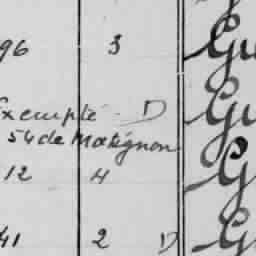 96 3 Gu
Exempté D Gu
54 de Matignon
12 4 G
41 2 D G